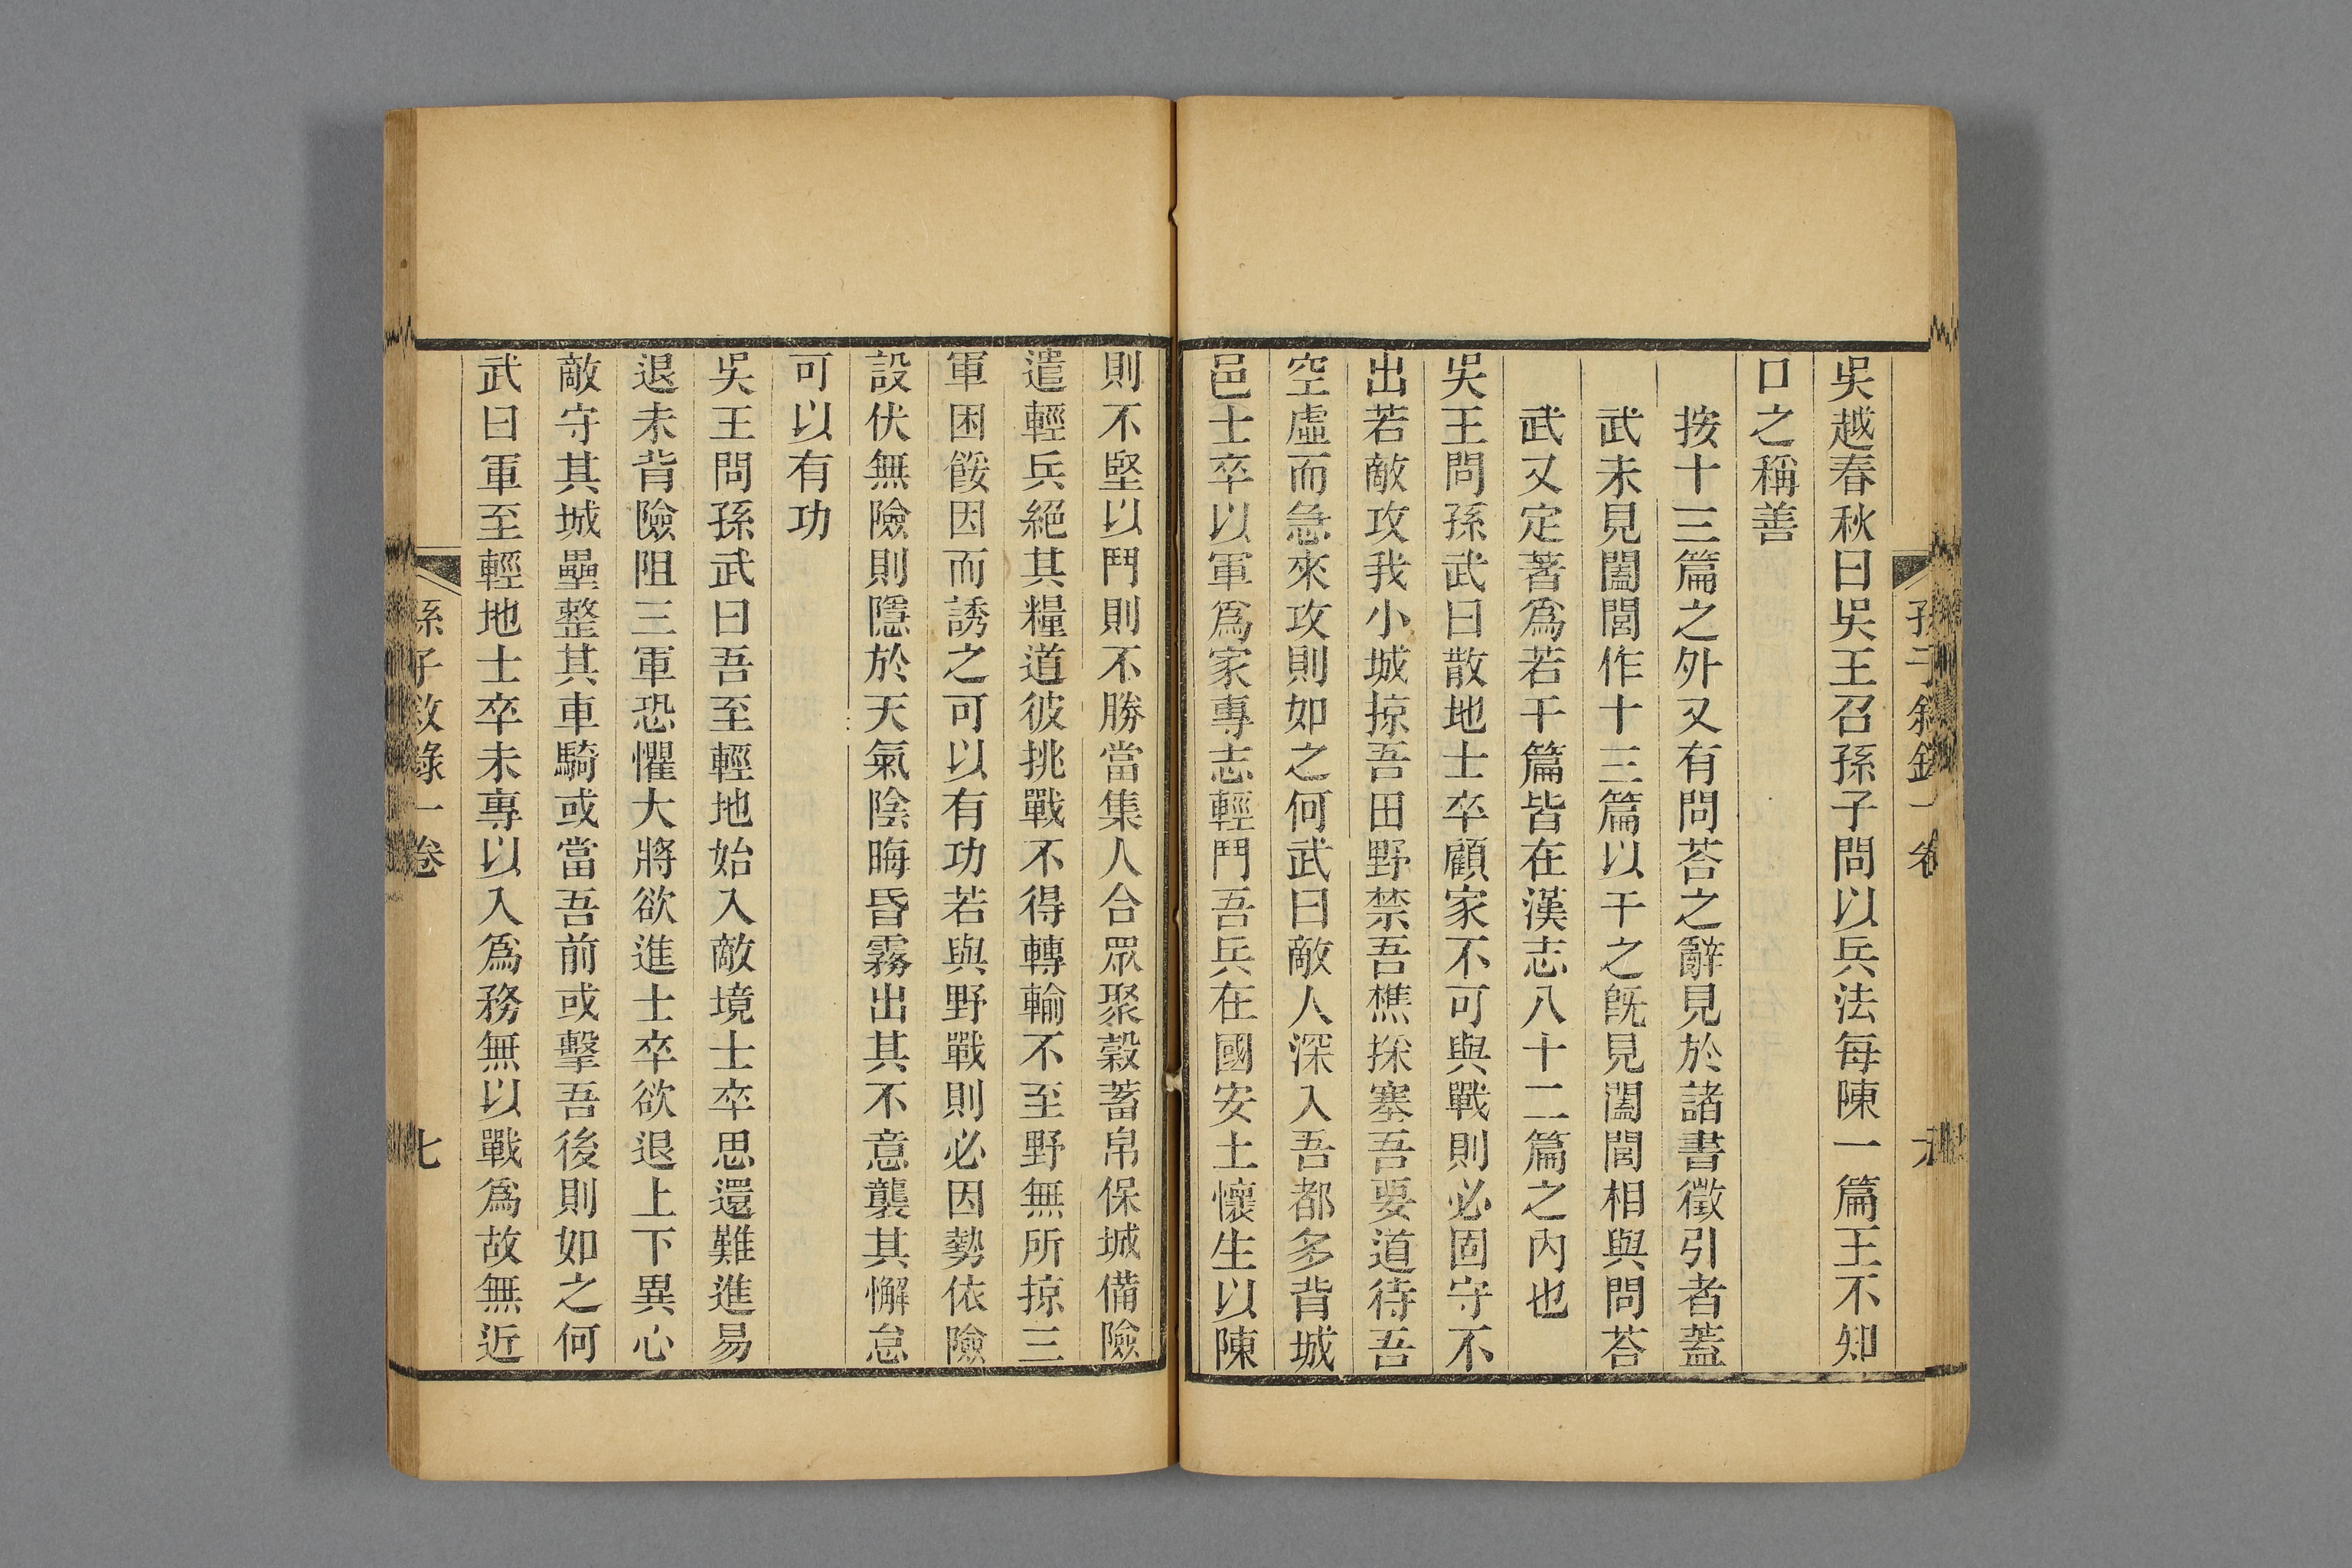 孫子敘錄一卷
吳越春秋曰吳王召孫子問以兵法每陳一篇王不知
口之稱善
按十三篇之外又有問荅之辭見於諸書徵引者蓋
武未見闔閭作十三篇以干之旣見闔閭相與問荅
武又定著爲若干篇皆在漢志八十二篇之內也
吳王問孫武曰散地士卒顧家不可與戰則必固守不
出若敵攻我小城掠吾田野禁吾樵採塞吾要道待吾
空虛而急來攻則如之何武曰敵人深入吾都多背城
邑士卒以軍爲家專志輕鬥吾兵在國安土懷生以陳
則不堅以鬥則不勝當集人合眾聚穀蓄帛保城備險
遣輕兵絕其糧道彼挑戰不得轉輸不至野無所掠三
軍困餒因而誘之可以有功若與野戰則必因勢依險
設伏無險則隱於天氣陰晦昏霧出其不意襲其懈怠
可以有功
吳王問孫武曰吾至輕地始入敵境士卒思還難進易
退未背險阻三軍恐懼大將欲進士卒欲退上下異心
敵守其城壘整其車騎或當吾前或擊吾後則如之何
武曰軍至輕地士卒未專以入爲務無以戰爲故無近
孫子敘錄一卷
七